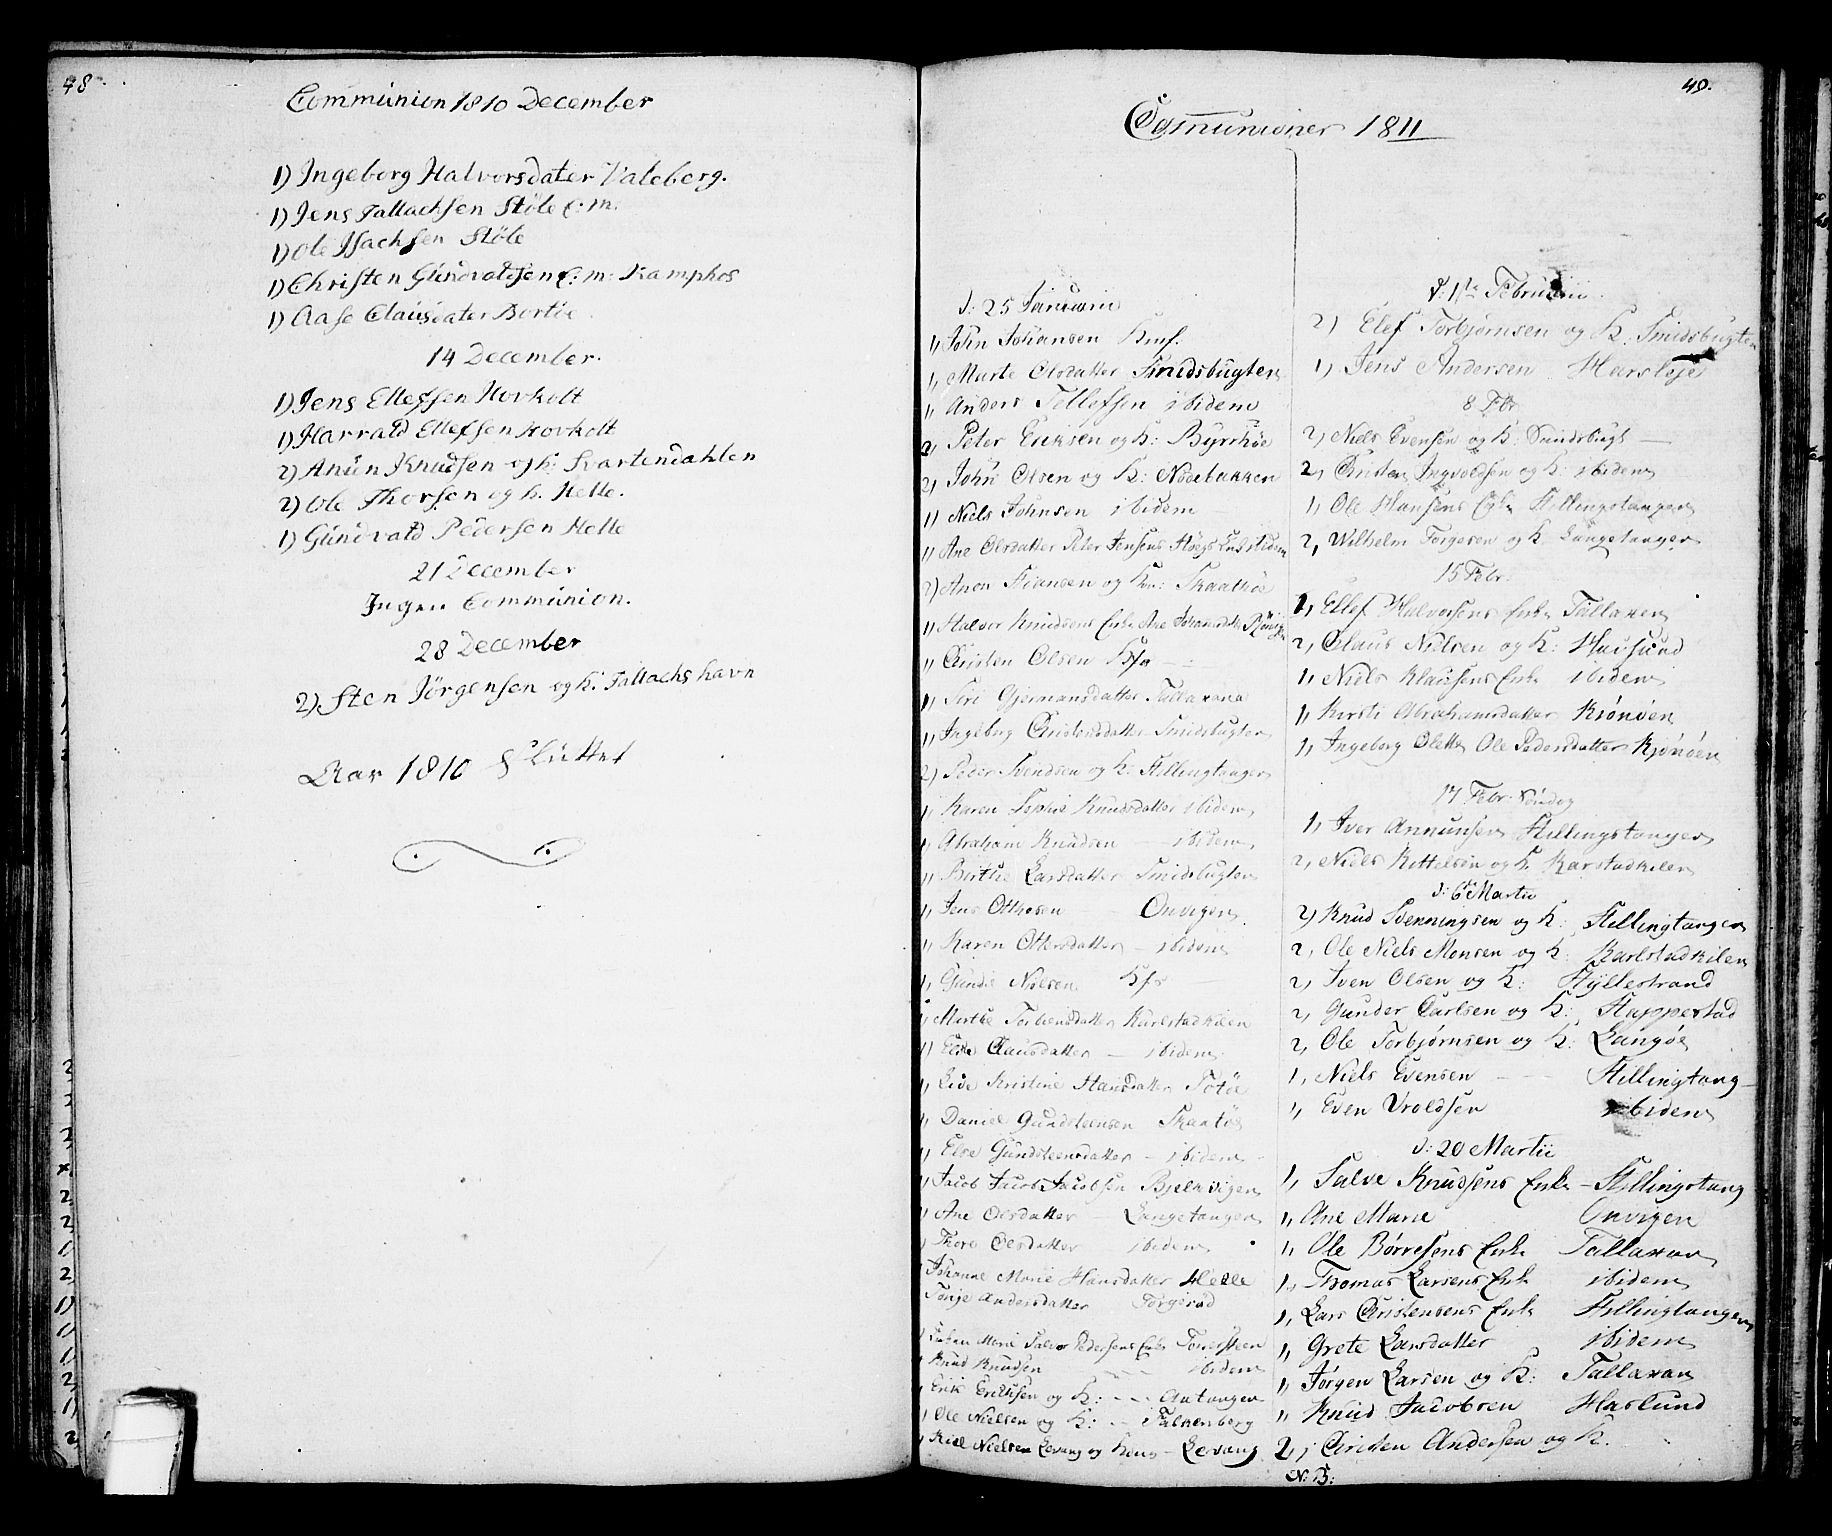 48.
Communion 1810 December
1) Ingeborg Halvorsdater Valeberg.
1) Jens Tallachsen Støle E: m.
1) Ole Isachsen Støle
1) Christen Gundvaldsen E: m: Kamphos
1) Aase Clausdater Bortøe
14 December.
1) Jens Ellefsen Hovholt
1) Harrald Ellefsen Hovholt
2) Anün Knudsen og k: Svartendahlen
2) Ole Thorsen og k. Helle.
1) Gündvald Pedersen Helle
21 December
Ingen Communion.
28 December
2) Sten Jörgensen og k: Tallachshavn
Aar 1810 Sluttet
49.
Comunioner 1811
d: 25 Januarii
1, John Johansen Kmf.
1, Marte Olsdatter Smidsbugten
1, Anders Tellefsen ibidem
2, Peter Eriksen og K: Byrrhöe
2, John Olsen og K: Nodebakken
1, Niels Johnsen ibidem
1, Ane Olsdatter Peter Jensens Høegs Enke ibidem
2) Anon Hansen og Kon: Skaathöe
1, Halvor Knudsens Enke Ane Johannsdatter
1, Cristen Olsen
1, Siri Gjermansdatter Tallaxana
1, Ingeborg Cristensdatter Smidsbugten
2) Peder Svendsen og K: Stillingtangen
1, Karen Sophie Knudsdatter ibidem
1, Abraham Knudsen — ibidem
1, Birthe Larsdatter Smidsbugten
1, Jens Otthesen — Onvigen
1, Karen Ottersdatter — ibidem
1, Gunde Nielsen
1, Marthe Torbensdatter Karlstadkilen
1, Else Clausdatter — ibidem
1, Live Kristine Hansdatter Totöe
1, Daniel Gundsteensen Skaatöe
1, Else Gundsteensdatter — ibidem
1, Jacob Jacob Jacobsen Bjelkvigen
1, Ane Olsdatter — Langetangen
1, Thore Olsdatter ibidem
Johanne Marie Hansdatter Helle
Tonje Andersdatter Torgerød
1, Johan Marie Salve Pedersens Enke
1, Knud Knudsen — ibidem
1, Erik Eriksen og K: — Aatangen
1, Ole Nielsen og K: — Falkenberg
1, Kiel Nielsen Levang og Kone — Levang
d: 1ste Februarii.
2) Elef Torbjørnsen og K: Smidsbugten
1) Jens Andersen Harsleje
8 Febr
2) Niels Evensen og K: Smidsbugt —
2, Cristen Ingvoldsen og K: ibidem
1, Ole Hansens Enke Stillingstangen
2, Wilhelm Torgesen og K Langetangen
15 Febr.
1, Ellef Halvorsens Enke Tallaxen
2, Claus Nielsen og K: Havsund
1, Niels Klausens Enke ibidem
1, Kirsti Abrahamsdatter Kjönöen
1, Ingeborg Olette Ole Pedersdatter Kjönöen
17 Febr: Søndag
1, Iver Annunsen Stillingstangen
2, Niels Kittelsen og K. Karstadkilen
d: 6te Martii
2) Knud Svenningsen og K: Stillingtangen
2, Ole Niels Monsen og K: Karlstadkilen
2, Sven Olsen og K: Hyllestrand
2, Gunder Carlsen og K: Stapperstad
2, Ole Torbjørnsen og K: Langöe
1, Niels Evensen — Stillingtang
1, Even Vroldsen ibidem
d: 20 Martii
1, Salve Knudsens Enke — Stillingstang
1, Ane Marie Onvigen
1, Ole Børresens Enke Tallaxan
1, Thomas Larsens Enke ibidem
1, Lars Cristensens Enke Stillingtangen
1, Grete Larsdatter ibidem
1, Jørgen Larsen og K: Tallaxan
1, Knud Jacobsen Haslund
2, Cristen Andersen og K.
N: B: